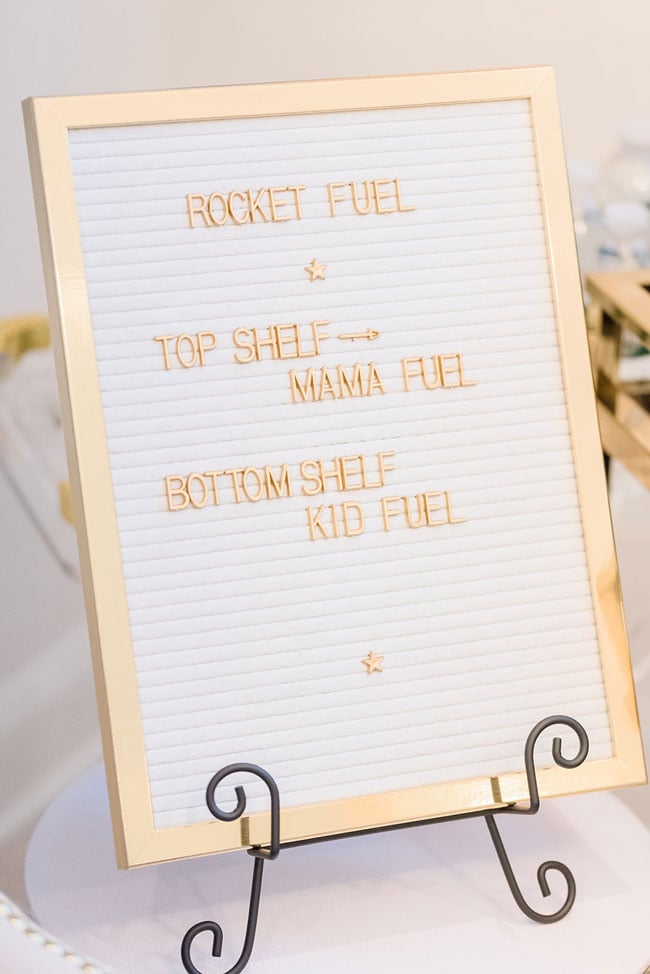 ROCKET FUEL
TOP SHELF
MAMA FUEL
BOTTOM SHELF
KID FUEL